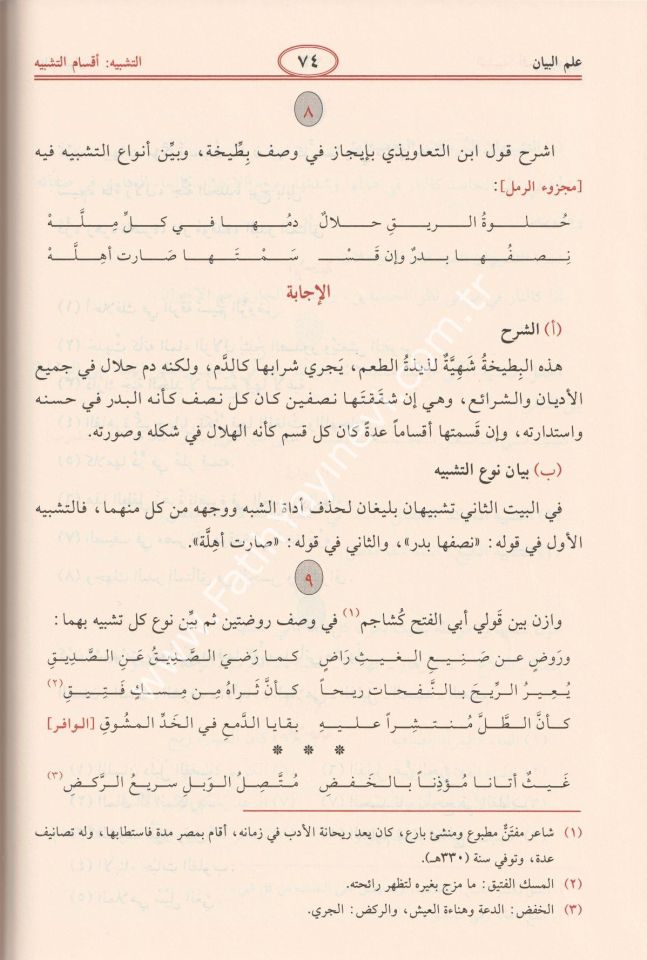 علم البيان ٧٤ التشبيه: أقسام التشبيه
٨
اشرح قول ابن التعاويذي بإيجاز في وصف بِطِّيخة، وبيِّن أنواع التشبيه فيه
[مجزوء الرمل]:
حُلوةُ الريقِ حلالٌ دمُها في كلِّ مِلَّهْ
نِصفُها بدرٌ وإن قَسْـ ـسَمْتَها صَارت أهِلَّهْ
الإجابة
(أ) الشرح
هذه البِطيخةُ شَهِيَّةٌ لذيذةُ الطعم، يَجري شرابها كالدَّم، ولكنه دم حلال في جميع
الأديان والشرائع، وهي إن شقَقتَها نصفين كان كل نصف كأنه البدر في حسنه
واستدارته، وإن قَسمتها أقساماً عدةً كان كل قسم كأنه الهلال في شكله وصورته.
(ب) بيان نوع التشبيه
في البيت الثاني تشبيهان بليغان لحذف أداة الشبه ووجهه من كل منهما، فالتشبيه
الأول في قوله: «نصفها بدر»، والثاني في قوله: «صارت أهِلَّة».
٩
وازن بين قَولي أبي الفتح كُشاجم(١) في وصف روضتين ثم بيِّن نوع كل تشبيه بهما:
ورَوضٍ عن صَنِيعِ الغيثِ رَاضٍ كما رَضيَ الصَّدِيقُ عَنِ الصَّدِيقِ
يُعِيرُ الرِّيحَ بالنَّفحات ريحاً كأنَّ ثَراهُ مِن مِسكٍ فَتِيقِ(٢)
كأنَّ الطَّلَّ مُنتشِراً عليهِ بقايا الدَّمعِ في الخَدِّ المشُوقِ [الوافر]
* * *
غَيثٌ أتانا مُؤذِناً بالخَفضِ مُتَّصِلُ الوَبلِ سريعُ الرَّكضِ(٣)
(١) شاعر مفتَنٌّ مطبوع ومنشئ بارع، كان يعد ريحانة الأدب في زمانه، أقام بمصر مدة فاستطابها، وله تصانيف
عدة، وتوفي سنة (٣٣٠هـ).
(٢) المسك الفتيق: ما مزج بغيره لتظهر رائحته.
(٣) الخفض: الدعة وهناءة العيش، والركض: الجري.
www.FatihYayinevi.com.tr